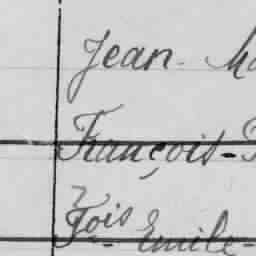 Jean-
François-
Fois- Emile-